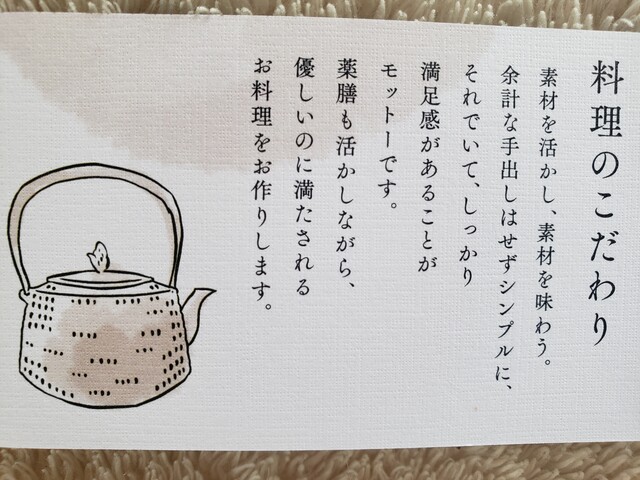 料理のこだわり
素材を活かし、素材を味わう。
余計な手出しはせずシンプルに、
それでいて、しっかり
満足感があることが
モットーです。
薬膳も活かしながら、
優しいのに満たされる
お料理をお作りします。